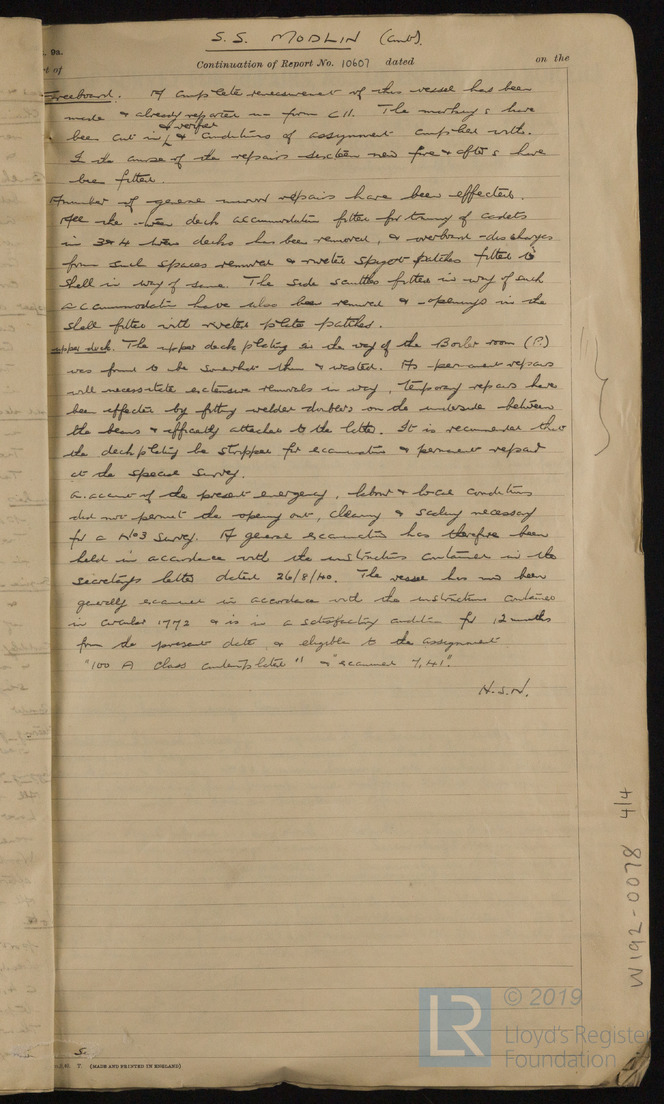 S.S. MODLIN (Contd).
9a.
t of
Continuation of Report No. 10607 dated on the
Freeboard. A complete remeasurement of this vessel has been
made & already reported on form C11. The markings have
& verified
been cut in & conditions of assignment complied with.
In the course of the repairs sixteen new fore & afters have
been fitted.
A number of general minor repairs have been effected.
All the tween deck accommodation fitted for training of cadets
in 3 & 4 tween decks has been removed, & overboard discharges
from such spaces removed & riveted spigot patches fitted to
shell in way of same. The side scuttles fitted in way of such
accommodation have also been removed & openings in the
shell fitted with riveted plate patches.
Upper deck. The upper deck plating in the way of the Boiler room (P.)
was found to be somewhat thin & wasted. As permanent repairs
will necessitate extensive removals in way, temporary repairs have
been effected by fitting welded doublers on the underside between
the beams & efficiently attached to the latter. It is recommended that
the deck plating be stripped for examination & permanent repair
at the special survey.
On account of the present emergency, labour & local conditions
did not permit the opening out, cleaning & scaling necessary
for a No3 survey. A general examination has therefore been
held in accordance with the instructions contained in the
secretarys letter dated 26/8/40. The vessel has now been
generally examined in accordance with the instructions contained
in circular 1772 & is in a satisfactory condition for 12 months
from the present date, & eligible to the assignment
"100 A class contemplated" & "examined 7,41".
H.S.N.
W192-0078 4/4
© 2019
LR
Lloyd's Register
Foundation
T. (MADE AND PRINTED IN ENGLAND)